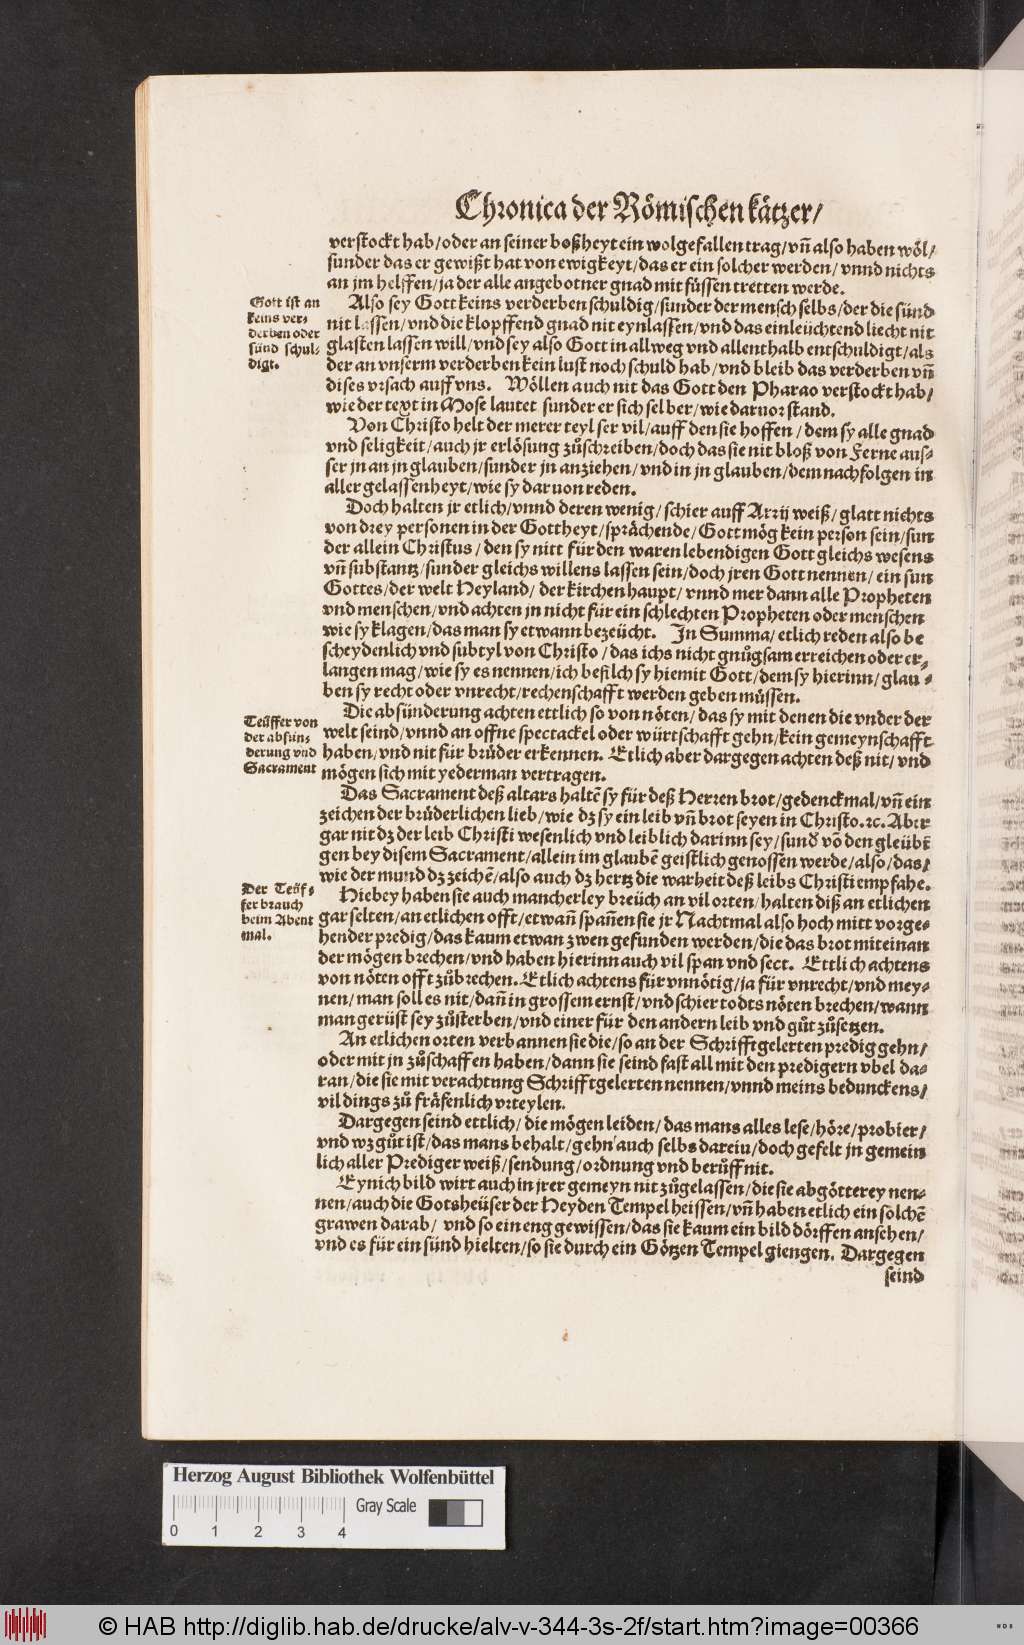 Chronica der Römischen kätzer/
verstockt hab/oder an seiner boßheyt ein wolgefallen trag/vñ also haben wöl/
sunder das er gewißt hat von ewigkeyt/das er ein solcher werden/vnnd nichts
an jm helffen/ja der alle angebotner gnad mit füssen tretten werde.
Gott ist an
keins ver-
derben oder
sünd schul-
digt.
Also sey Gott keins verderben schuldig/sunder der mensch selbs/der die sünd
nit lassen/vnd die klopffend gnad nit eynlassen/vnd das einleüchtend liecht nit
glasten lassen will/vnd sey also Gott in allweg vnd allenthalb entschuldigt/als
der an vnserm verderben kein lust noch schuld hab/vnd bleib das verderben vñ
dises vrsach auff vns. Wöllen auch nit das Gott den Pharao verstockt hab/
wie der text in Mose lautet sunder er sich selber/wie daruor stand.
Von Christo helt der merer teyl ser vil/auff den sie hoffen/dem sy alle gnad
vnd seligkeit/auch jr erlösung zůschreiben/doch das sie nit bloß von Ferne aus-
ser jn an jn glauben/sunder jn anziehen/vnd in jn glauben/dem nachfolgen in
aller gelassenheyt/wie sy daruon reden.
Doch halten jr etlich/vnnd deren wenig/schier auff Arrij weiß/glatt nichts
von drey personen in der Gottheyt/sprächende/Gott mög kein person sein/sun
der allein Christus/den sy nitt für den waren lebendigen Gott gleichs wesens
vñ substantz/sunder gleichs willens lassen sein/doch jren Gott nennen/ein sun
Gottes/der welt Heyland/der kirchen haupt/vnnd mer dann alle Propheten
vnd menschen/vnd achten jn nicht für ein schlechten Propheten oder menschen
wie sy klagen/das man sy etwann bezeücht. In Summa/etlich reden also be
scheydenlich vnd subtyl von Christo/das ichs nicht gnůgsam erreichen oder er-
langen mag/wie sy es nennen/ich befilch sy hiemit Gott/dem sy hierinn/glau-
ben sy recht oder vnrecht/rechenschafft werden geben müssen.
Teüffer von
der absün-
derung vnd
Sacrament
Die absünderung achten ettlich so von nöten/das sy mit denen die vnder der
welt seind/vnnd an offne spectackel oder würtschafft gehn/kein gemeynschafft
haben/vnd nit für brůder erkennen. Etlich aber dargegen achten deß nit/vnd
mögen sich mit yederman vertragen.
Das Sacrament deß altars haltẽ sy für deß Herren brot/gedenckmal/vñ ein
zeichen der brůderlichen lieb/wie dz sy ein leib vñ brot seyen in Christo.ꝛc. Aber
gar nit dz der leib Christi wesenlich vnd leiblich darinn sey/sund̕ võ den gleübi
gen bey disem Sacrament/allein im glaubẽ geistlich genossen werde/also/das/
wie der mund dz zeichẽ/also auch dz hertz die warheit deß leibs Christi empfahe.
Der Teüf-
fer brauch
beim Abent
mal.
Hiebey haben sie auch mancherley breüch an vil orten/halten diß an etlichen
gar selten/an etlichen offt/etwañ spañen sie jr Nachtmal also hoch mitt vorge-
hender predig/das kaum etwan zwen gefunden werden/die das brot miteinan
der mögen brechen/vnd haben hierinn auch vil span vnd sect. Ettlich achtens
von nöten offt zůbrechen. Etlich achtens für vnnötig/ja für vnrecht/vnd mey-
nen/man soll es nit/dañ in grossem ernst/vnd schier todts nöten brechen/wann
man gerüst sey zůsterben/vnd einer für den andern leib vnd gůt zůsetzen.
An etlichen orten verbannen sie die/so an der Schrifftgelerten predig gehn/
oder mit jn zůschaffen haben/dann sie seind fast all mit den predigern vbel da-
ran/die sie mit verachtung Schrifftgelerten nennen/vnnd meins bedunckens/
vil dings zů fräfenlich vrteylen.
Dargegen seind ettlich/die mögen leiden/das mans alles lese/höre/probier/
vnd wz gůt ist/das mans behalt/gehn auch selbs darein/doch gefelt jn gemein
lich aller Prediger weiß/sendung/ordnung vnd berůff nit.
Eynich bild wirt auch in jrer gemeyn nit zůgelassen/die sie abgötterey nen-
nen/auch die Gotsheüser der Heyden Tempel heissen/vñ haben etlich ein solchẽ
grawen darab/vnd so ein eng gewissen/das sie kaum ein bild dörffen ansehen/
vnd es für ein sünd hielten/so sie durch ein Götzen Tempel giengen. Dargegen
seind
Herzog August Bibliothek Wolfenbüttel
Gray Scale
0 1 2 3 4
© HAB http://diglib.hab.de/drucke/alv-v-344-3s-2f/start.htm?image=00366